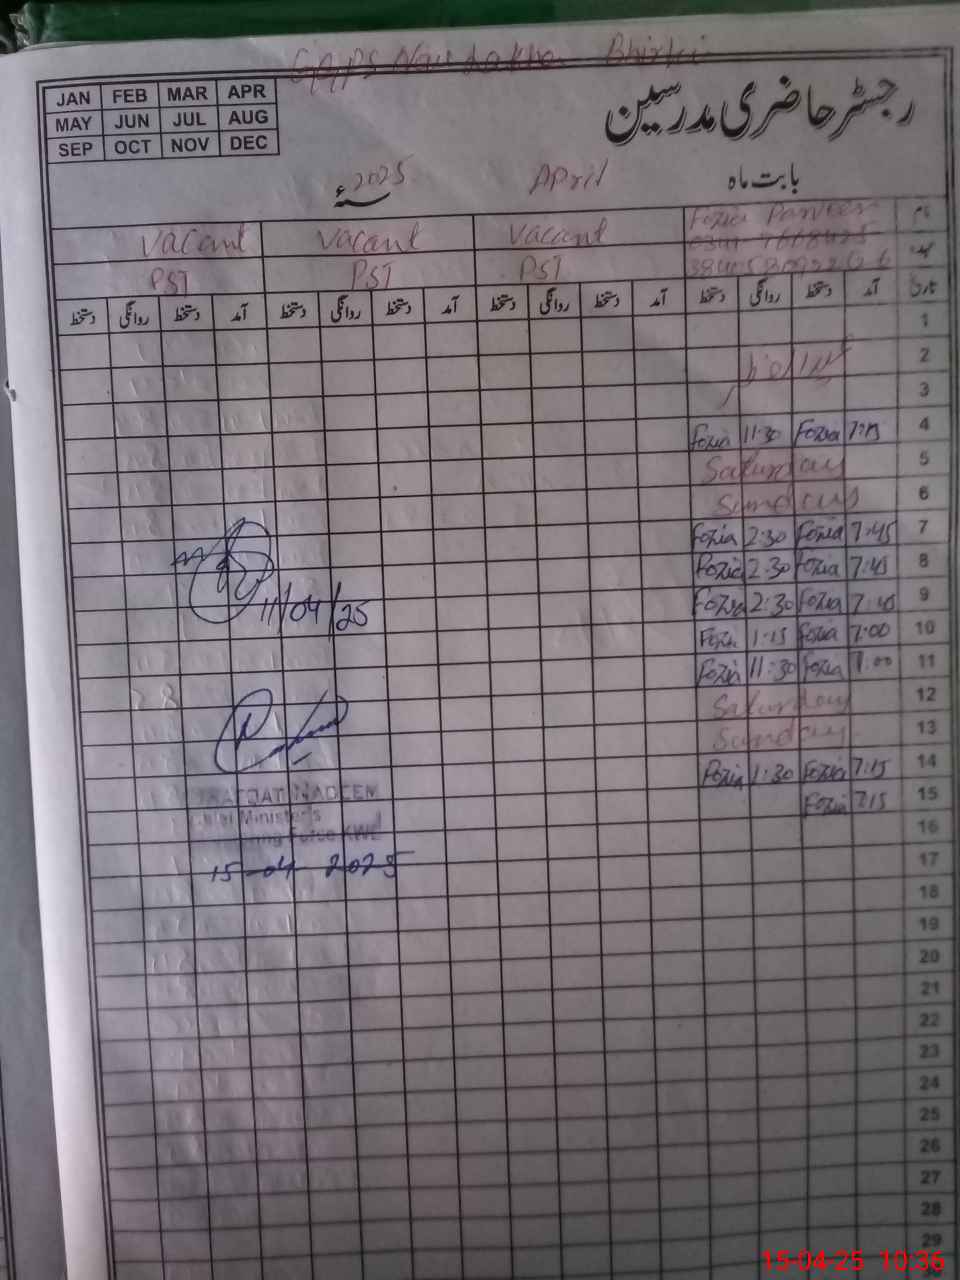 GGPS Nau Lakha Bhirki
JAN FEB MAR APR
MAY JUN JUL AUG
SEP OCT NOV DEC
رجسٹر حاضری مدرسین
بابت ماہ April 2025 سنہء
نام Fozia Parveen Vacant Vacant Vacant
عہدہ PST PST PST
تاریخ آمد دستخط روانگی دستخط آمد دستخط روانگی دستخط آمد دستخط روانگی دستخط آمد دستخط روانگی دستخط
1
2
3
4 7:15 Fozia 11:30 Fozia
5 Saturday
6 Sunday
7 7:45 Fozia 2:30 Fozia
8 7:45 Fozia 2:30 Fozia
9 7:45 Fozia 2:30 Fozia
11/04/25
10 7:00 Fozia 1:15 Fozia
11 7:00 Fozia 11:30 Fozia
12 Saturday
13 Sunday
14 7:15 Fozia 1:30 Fozia
15 7:15 Fozia
NADEEM
Chief Minister's
Force KWL
16
15-04-2025
17
18
19
20
21
22
23
24
25
26
27
28
29
15-04-25 10:36